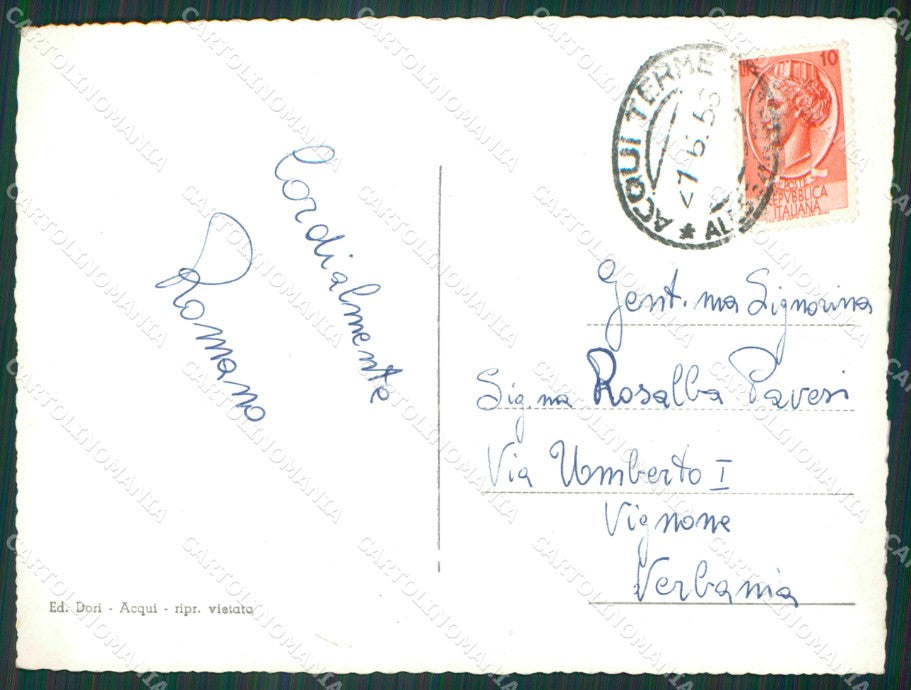 Cordialmente
Romano
Ed. Dori - Acqui - ripr. vietata
ACQUI TERME
* ALESSANDRIA
10
POSTE
REPVBBLICA
ITALIANA
Gent.ma Signorina
Sig.na Rosalba Pavesi
Via Umberto I
Vignone
Verbania
CARTOLINOMANIA